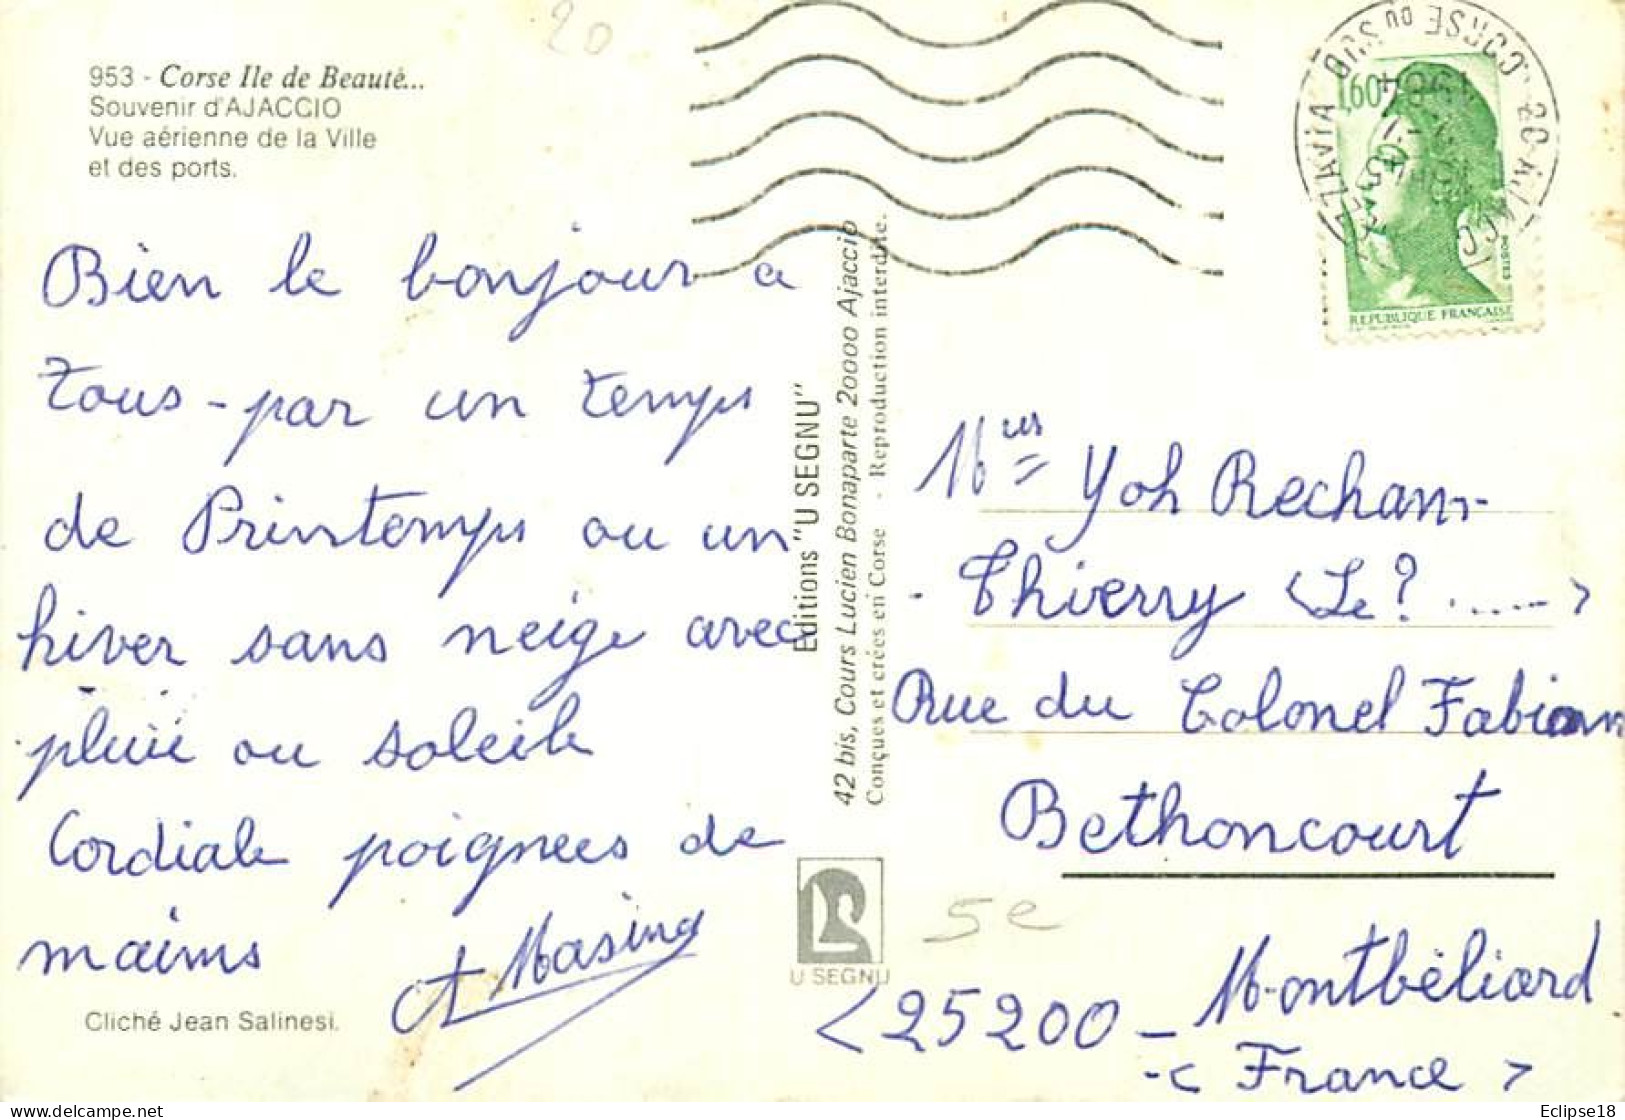 20
953 - Corse Ile de Beauté...
Souvenir d'AJACCIO
Vue aérienne de la Ville
et des ports.
Bien le bonjour a
tous - par un temps
de Printemps ou un
hiver sans neige avec
pluie ou soleile
Cordiale poignees de
mains
A Masina
Cliché Jean Salinesi.
Editions "U SEGNU"
42 bis, Cours Lucien Bonaparte 20000 Ajaccio
Conçues et crées en Corse - Reproduction interdite.
U SEGNU
20 AJACCIO CORSE DU SUD
1984
1,60
POSTES
REPUBLIQUE FRANÇAISE
Mrs Yoh Recham-
- Thierry <Le? ......>
Rue du Colonel Fabian
Bethoncourt
5e
<25200 - Montbéliard
-< France >
Eclipse18